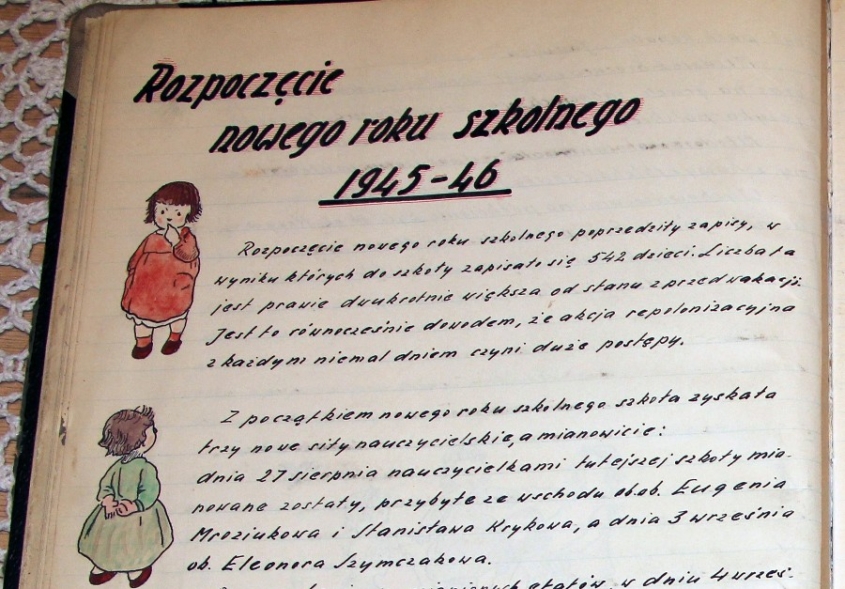 Rozpoczęcie
nowego roku szkolnego
1945-46
Rozpoczęcie nowego roku szkolnego poprzedziły zapisy, w
wyniku których do szkoły zapisało się 542 dzieci. Liczba ta
jest prawie dwukrotnie większa od stanu z przed wakacji.
Jest to równocześnie dowodem, że akcja repolonizacyjna
z każdym niemal dniem czyni duże postępy.
Z początkiem nowego roku szkolnego szkoła zyskała
trzy nowe siły nauczycielskie, a mianowicie:
dnia 27 sierpnia nauczycielkami tutejszej szkoły mia-
nowane zostały, przybyłe ze wschodu ob.ob. Eugenia
Mroziukowa i Stanisława Krykowa, a dnia 3 września
ob. Eleonora Szymczakowa.
etatów, w dniu 4 wrześ-